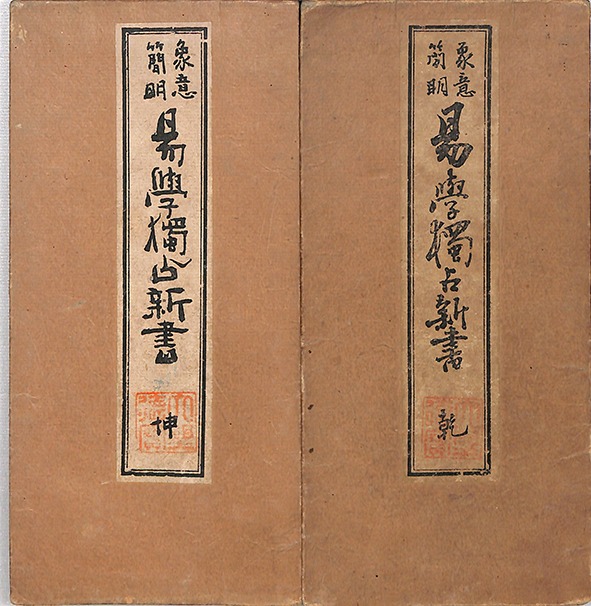 象意
簡明
易學獨占新書
乾
象意
簡明
易學獨占新書
坤